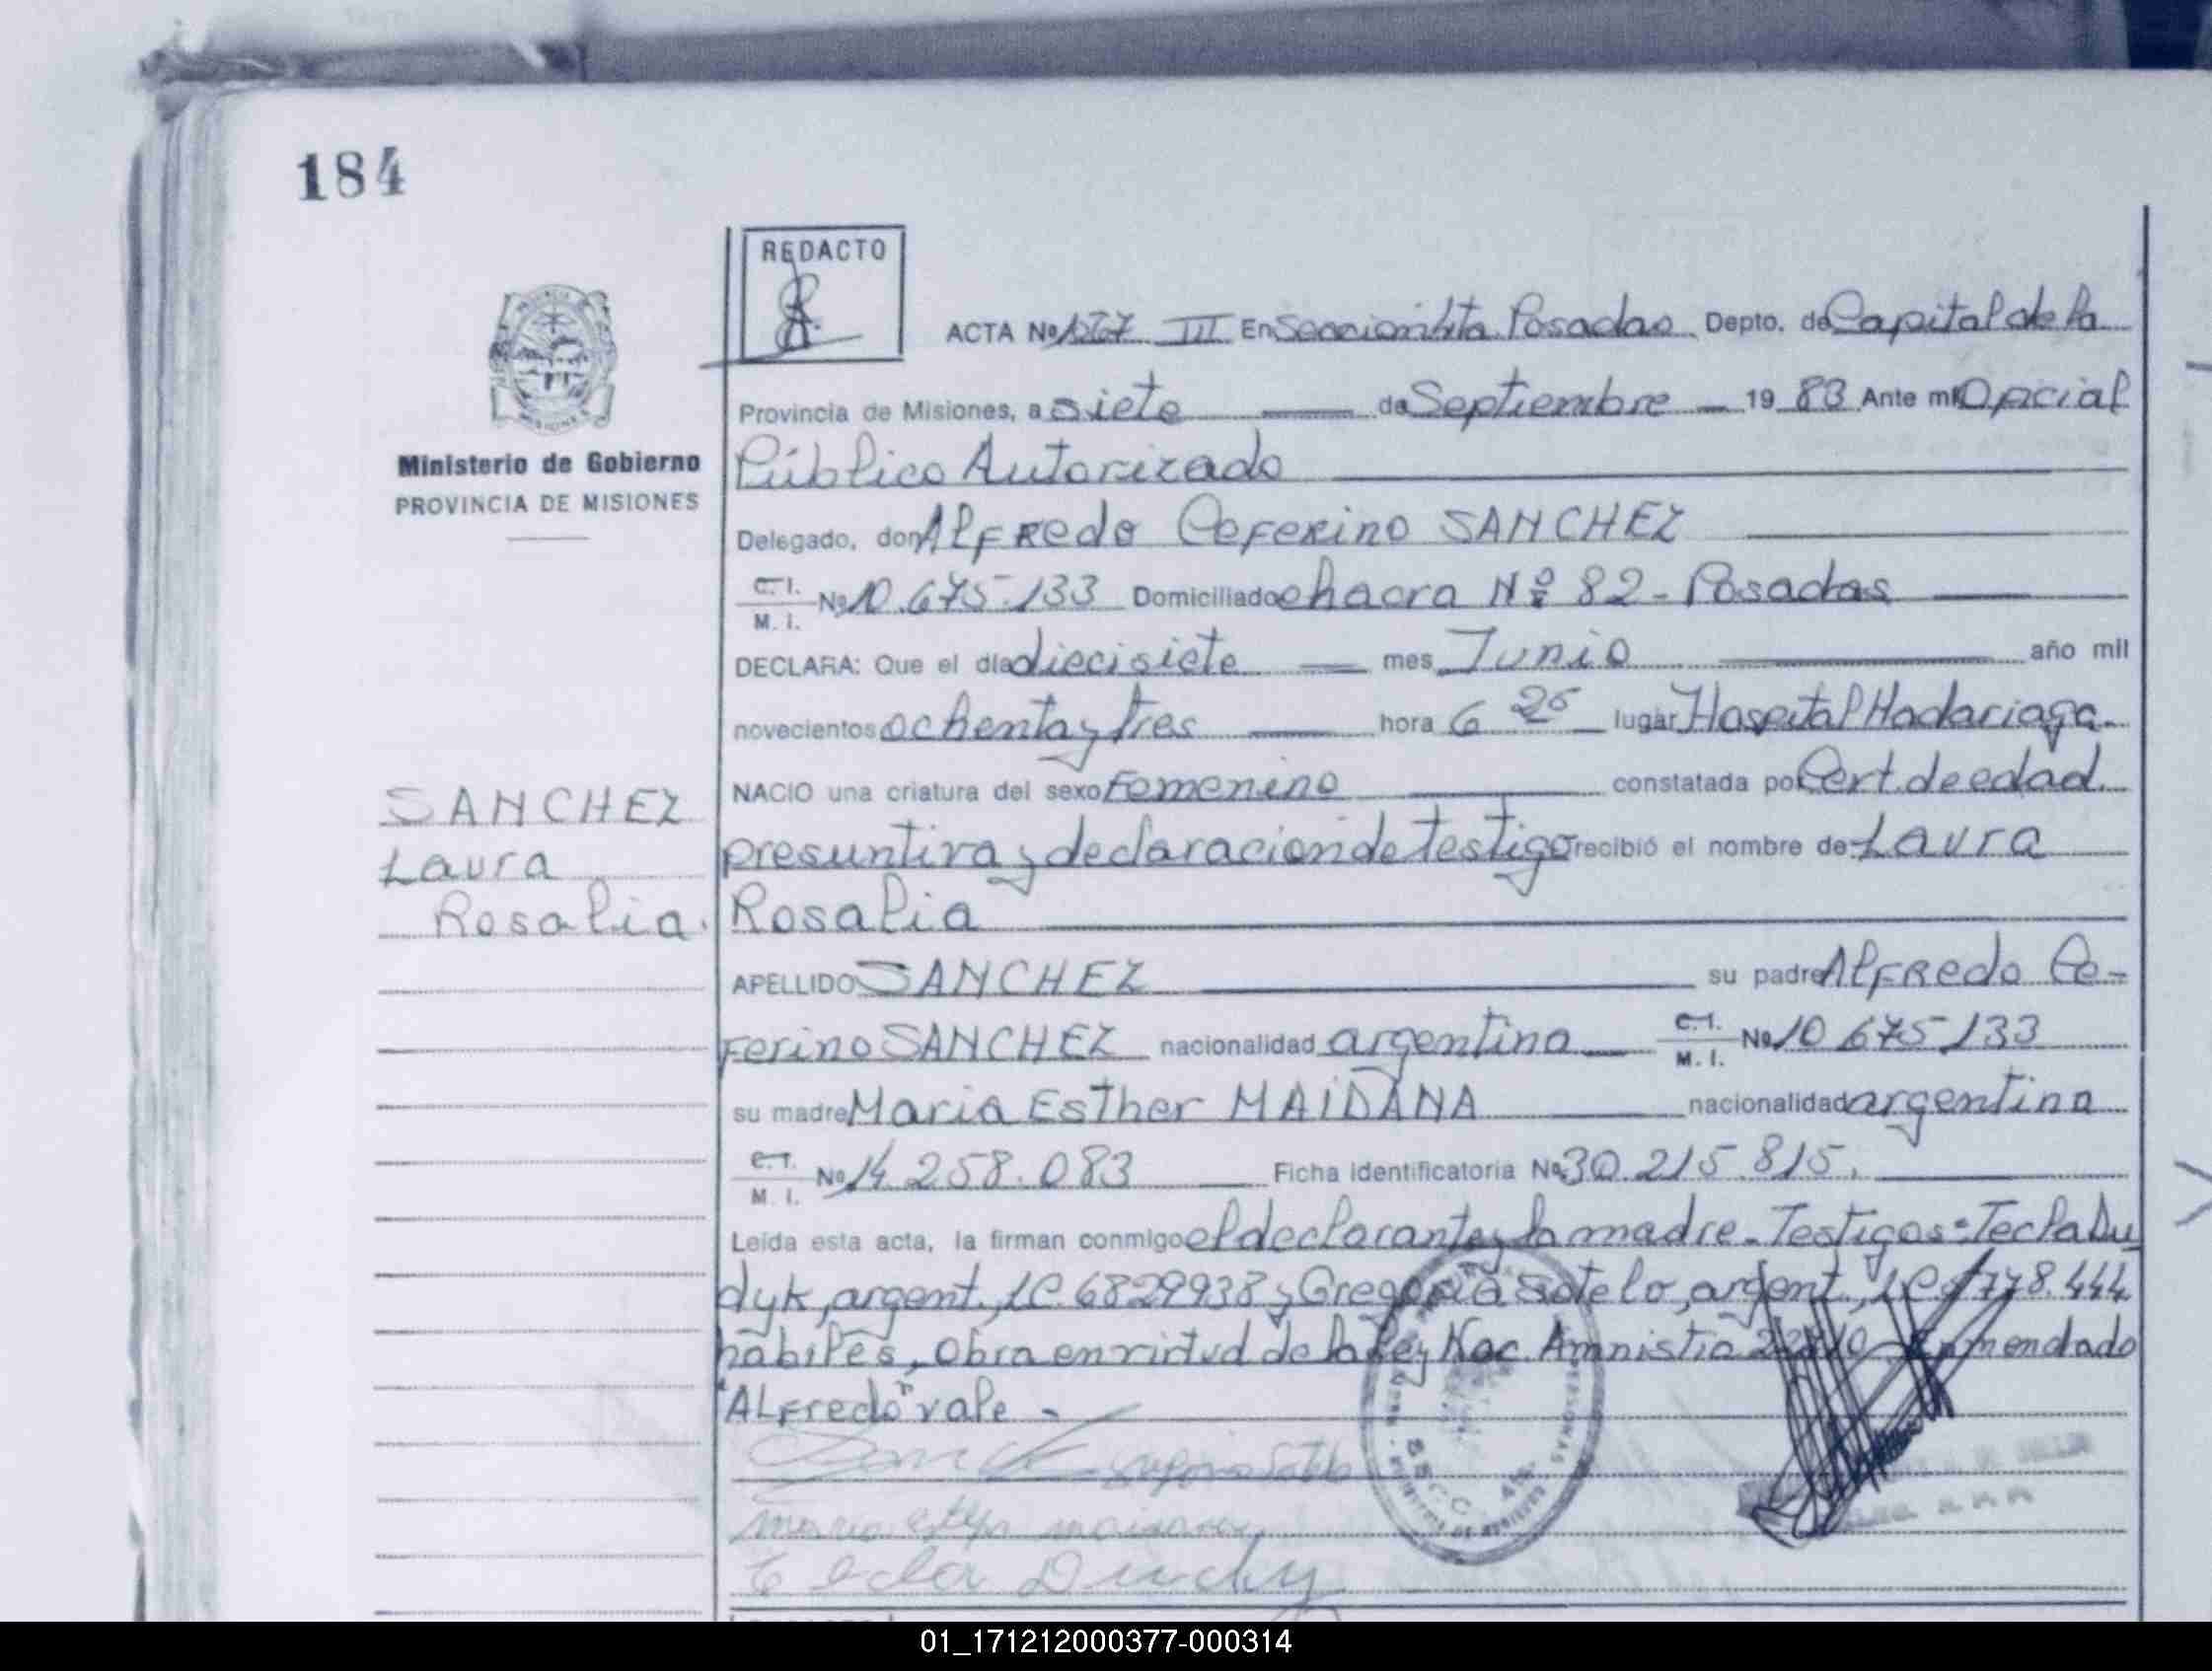 184
REDACTO
ACTA Nº 1267 III En Sección 4ta Posadas Depto. de Capital de la
Provincia de Misiones, a siete de Septiembre 19 83 Ante mí Oficial
Ministerio de Gobierno
PROVINCIA DE MISIONES
Público Autorizado
Delegado, don Alfredo Ceferino SANCHEZ
C.I. M.I. Nº 10.675.133 Domiciliado chacra Nº 82 - Posadas
DECLARA: Que el día diecisiete mes Junio año mil
novecientos ochenta y tres hora 6 25 lugar Hospital Madariaga
NACIO una criatura del sexo Femenino constatada por Cert. de edad
presuntiva y declaracion de testigo recibió el nombre de Laura
Rosalia
SANCHEZ
Laura
Rosalia.
APELLIDO SANCHEZ su padre Alfredo Ce-
ferino SANCHEZ nacionalidad argentina C.I. M.I. Nº 10 675 133
su madre Maria Esther MAIDANA nacionalidad argentina
C.I. M.I. Nº 14.258.083 Ficha identificatoria Nº 30.215.815.
Leída esta acta, la firman conmigo el declarante y la madre - Testigos: Tecla Du
dyk, argent., LC. 6829938 y Gregoria Sotelo, argent.,
habiles, Obra en virtud de la Ley Nac. Amnistia Enmendado
"Alfredo" vale -
01_171212000377-000314